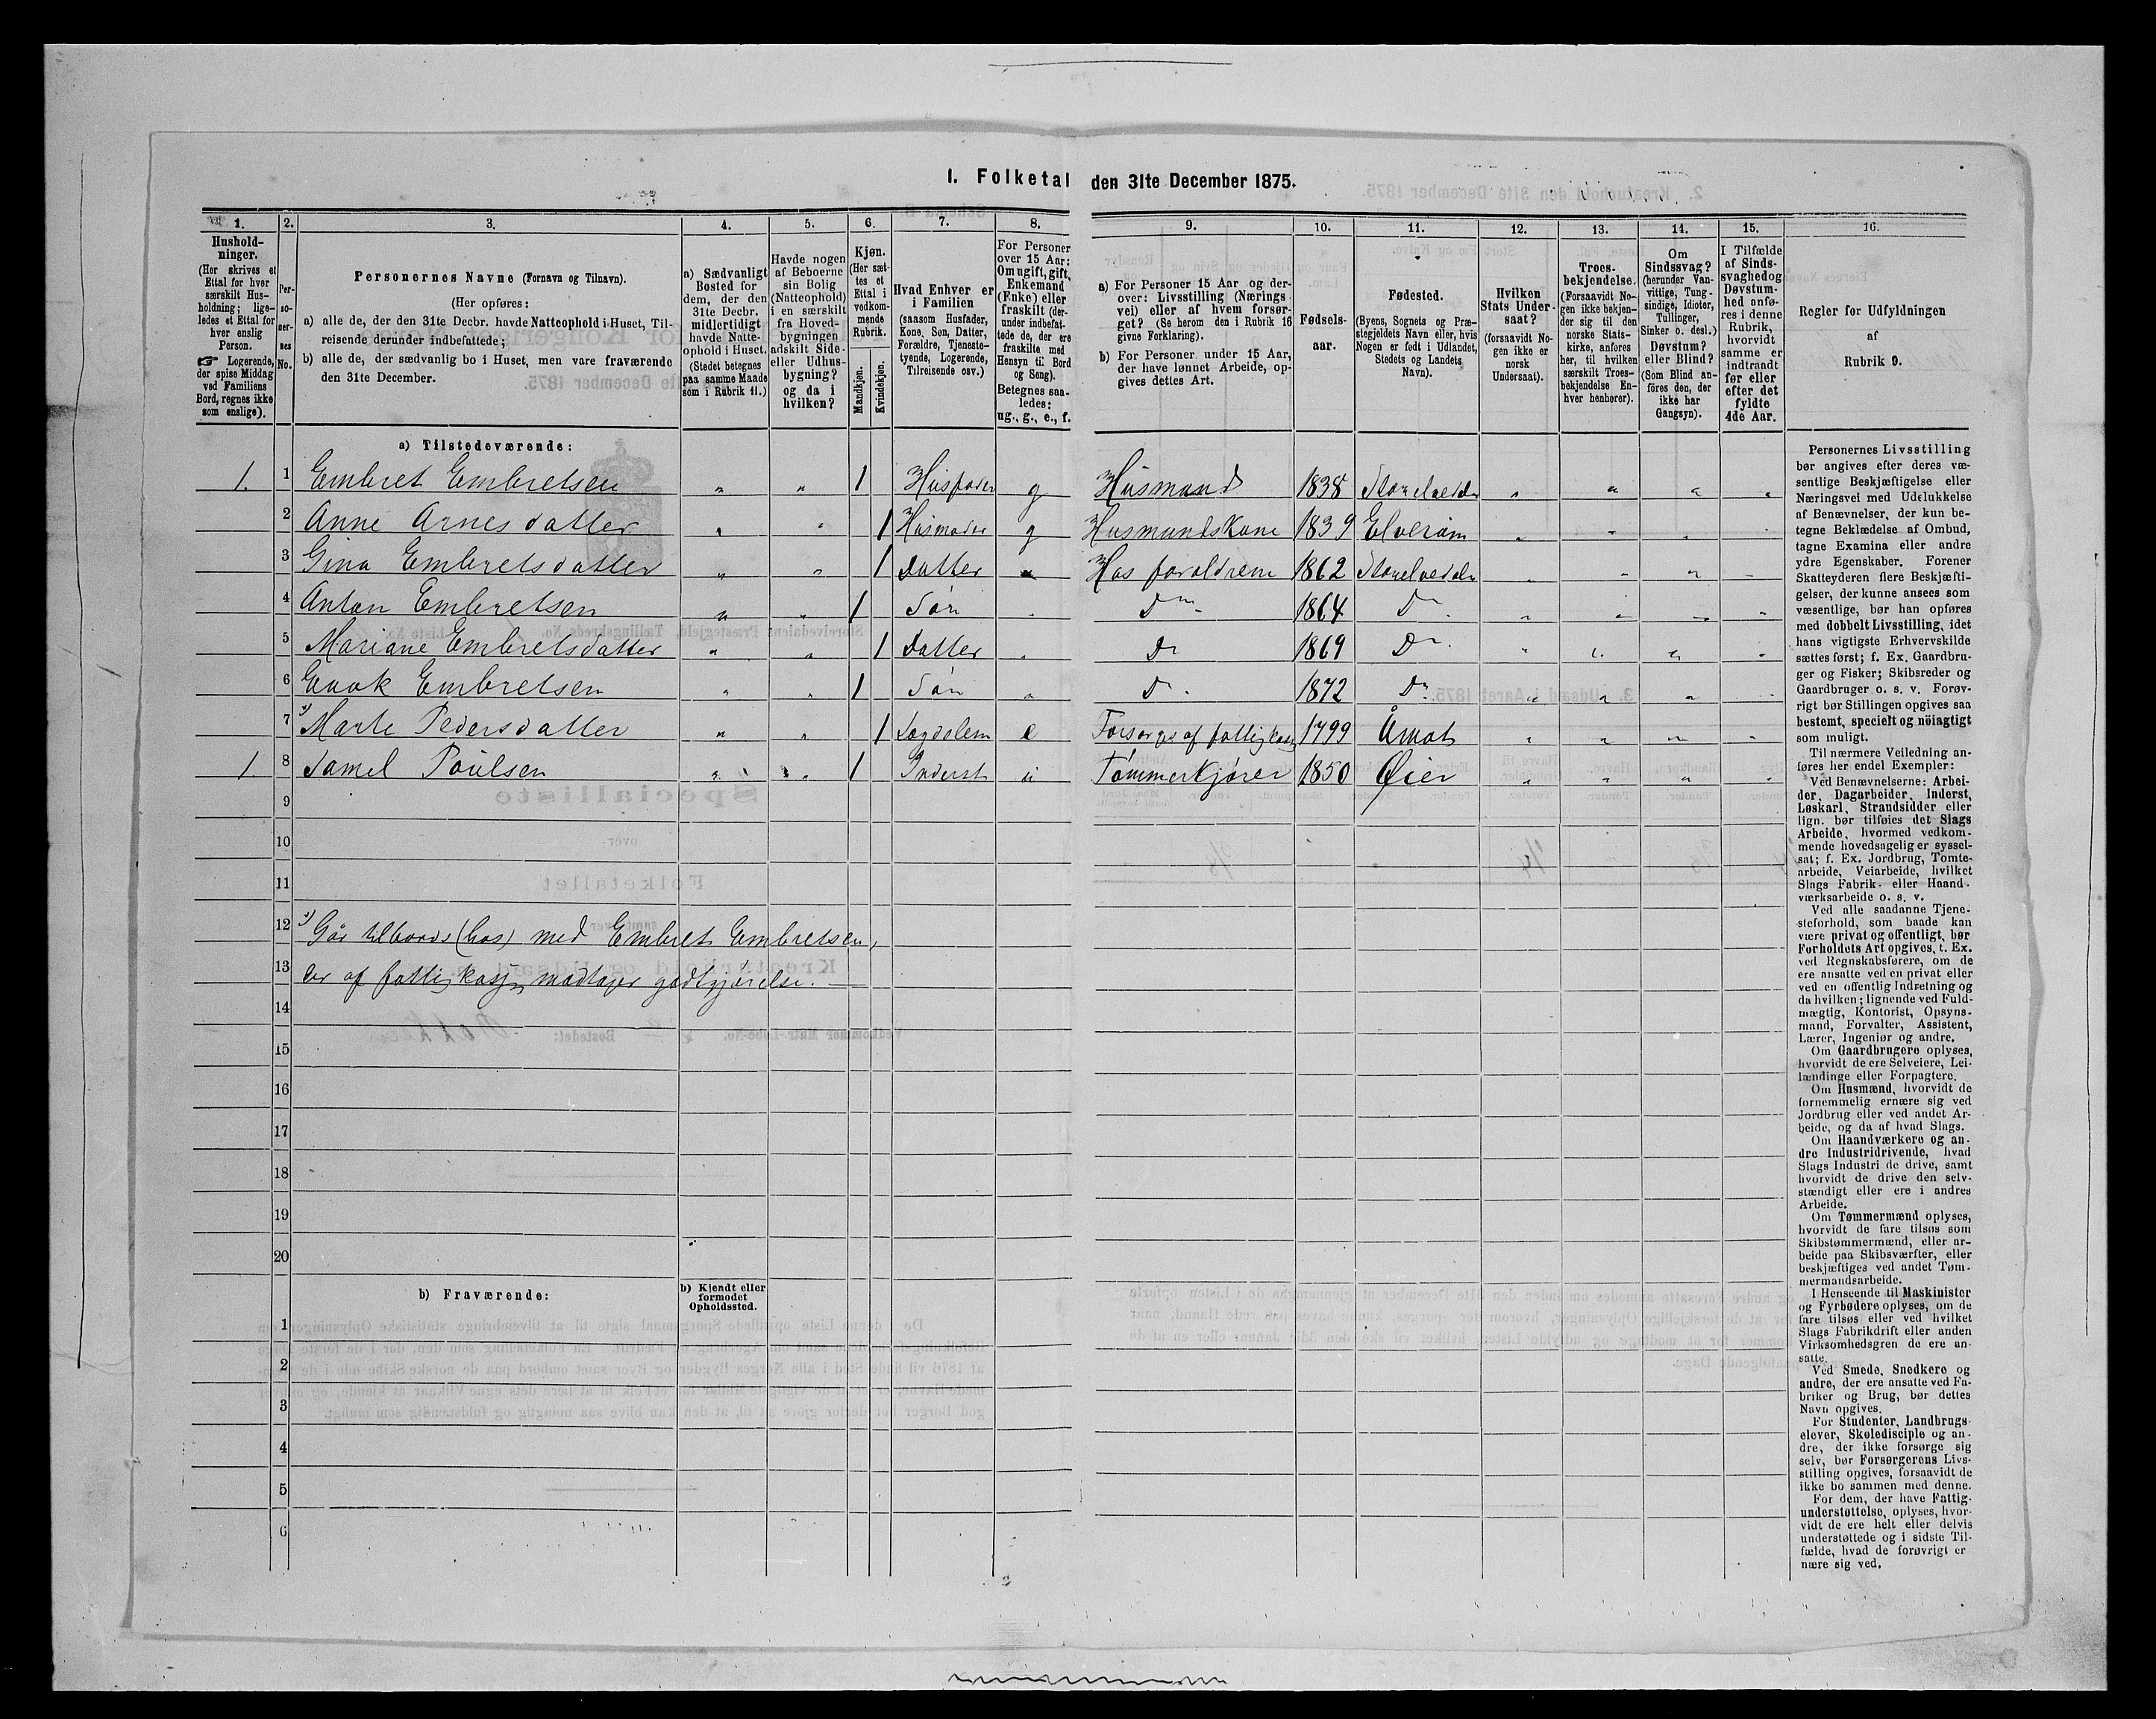 I. Folketal den 31te December 1875.
1. 2. 3. 4. 5. 6. 7. 8. 9. 10. 11. 12. 13. 14. 15. 16.
Hushold-
ninger.
(Her skrives et
Ettal for hver
særskilt Hus-
holdning; lige-
ledes et Ettal for
hver enslig
Person.
☞ Logerende,
der spise Middag
ved Familiens
Bord, regnes ikke
som enslige).
Per-
so-
ner-
nes
No.
Personernes Navne (Fornavn og Tilnavn).
(Her opføres:
a) alle de, der den 31te Decbr. havde Natteophold i Huset, Til-
reisende derunder indbefattede;
b) alle de, der sædvanlig bo i Huset, men vare fraværende
den 31te December.
a) Sædvanligt
Bosted for
dem, der den
31te Decbr.
midlertidigt
havde Natte-
ophold i Huset.
(Stedet betegnes
paa samme Maade
som i Rubrik 11.)
Havde nogen
af Beboerne
sin Bolig
(Natteophold)
i en særskilt
fra Hoved-
bygningen
adskilt Side-
eller Udhus-
bygning?
og da i
hvilken?
Kjøn.
(Her sæt-
tes et
Ettal i
vedkom-
mende
Rubrik.
Mandkjøn.
Kvindekjøn.
Hvad Enhver er
i Familien
(saasom Husfader,
Kone, Søn, Datter,
Forældre, Tjeneste-
tyende, Logerende,
Tilreisende osv.)
For Personer
over 15 Aar:
Om ugift, gift,
Enkemand
(Enke) eller
fraskilt (der-
under indbefat-
tede de, der ere
fraskilte med
Hensyn til Bord
og Seng).
Betegnes saa-
ledes:
ug., g., e., f.
a) For Personer 15 Aar og der-
over: Livsstilling (Nærings
vei) eller af hvem forsør-
get? (Se herom den i Rubrik 16
givne Forklaring).
b) For Personer under 15 Aar,
der have lønnet Arbeide, op-
gives dettes Art.
Fødsels-
aar.
Fødested.
(Byens, Sognets og Præ-
stegjeldets Navn eller, hvis
Nogen er født i Udlandet,
Stedets og Landets
Navn).
Hvilken
Stats Under-
saat?
(forsaavidt No-
gen ikke er
norsk
Undersaat).
Troes-
bekjendelse.
(Forsaavidt No-
gen ikke bekjen-
der sig til den
norske Stats-
kirke, anføres
her, til hvilken
særskilt Troes-
bekjendelse En-
hver henhører).
Om
Sindssvag?
(herunder Van-
vittige, Tung-
sindige, Idioter,
Tullinger,
Sinker o. desl.)
Døvstum?
eller Blind?
(Som Blind an-
föres den, der
ikke har
Gangsyn).
I Tilfælde
af Sinds-
svaghed og
Døvstum-
hed anfø-
res i denne
Rubrik,
hvorvidt
samme er
indtraadt
før eller
efter det
fyldte
4de Aar.
Regler for Udfyldningen
af
Rubrik 9.
a) Tilstedeværende:
1. 1 Embret Embretsen „ „ 1 Husfader g Husmand 1838 Storelvedalen
2 Anne Arnesdatter „ „ 1 Husmoder g Husmandskone 1839 Elverum
3 Gina Embretsdatter „ „ 1 Datter Hos forældrene 1862 Storelvedalen
4 Anton Embretsen „ „ 1 Søn Do 1864 Do
5 Mariane Embretsdatter „ „ 1 Datter Do 1869 Do
6 Embretsen „ „ 1 Søn Do 1872 Do
7 Marte Pedersdatter „ „ 1 Lægdslem e Forsørges af fattigkassen 1799 Åmot
1. 8 Samel Poulsen „ „ 1 Inderst u Tømmerkjører 1850 Øier
9
10
11
12 Går tilbords (hos) med Embret Embretsen,
13 der af fattigkassen modtager godtgjørelse.
14
15
16
17
18
19
20
b) Fraværende:
b) Kjendt eller
formodet
Opholdssted.
1
2
3
4
5
6
Personernes Livsstilling
bør angives efter deres væ-
sentlige Beskjæftigelse eller
Næringsvei med Udelukkelse
af Benævnelser, der kun be-
tegne Beklædelse af Ombud,
tagne Examina eller andre
ydre Egenskaber. Forener
Skatteyderen flere Beskjæfti-
gelser, der kunne ansees som
væsentlige, bør han opføres
med dobbelt Livsstilling, idet
hans vigtigste Erhvervskilde
sættes først; f. Ex. Gaardbru-
ger og Fisker; Skibsreder og
Gaardbruger o. s. v. Forøv-
rigt bør Stillingen opgives saa
bestemt, specielt og nöiagtigt
som muligt.
Til nærmere Veiledning an-
føres her endel Exempler:
Ved Benævnelserne: Arbei-
der, Dagarbeider, Inderst,
Løskarl, Strandsidder eller
lign. bør tilføies det Slags
Arbeide, hvormed vedkom-
mende hovedsagelig er syssel-
sat; f. Ex. Jordbrug, Tomte-
arbeide, Veiarbeide, hvilket
Slags Fabrik- eller Haand-
værksarbeide o. s. v.
Ved alle saadanne Tjene-
steforhold, som baade kan
være privat og offentligt, bør
Forholdets Art opgives, t. Ex.
ved Regnskabsførere, om de
ere ansatte ved en privat eller
ved en offentlig Indretning og
da hvilken; lignende ved Fuld-
mægtig, Kontorist, Opsyns-
mand, Forvalter, Assistent,
Lærer, Ingeniør og andre.
Om Gaardbrugere oplyses,
hvorvidt de ere Selveiere, Lei-
lændinge eller Forpagtere.
Om Husmænd, hvorvidt de
fornemmelig ernære sig ved
Jordbrug eller ved andet Ar-
beide, og da af hvad Slags.
Om Haandværkere og an-
dre Industridrivende, hvad
Slags Industri de drive, samt
hvorvidt de drive den selv-
stændigt eller ere i andres
Arbeide.
Om Tømmermænd oplyses,
hvorvidt de fare tilsøs som
Skibstømmermænd, eller ar-
beide paa Skibsværfter, eller
beskjæftiges ved andet Tøm-
mermandsarbeide.
I Henseende til Maskinister
og Fyrbødere oplyses, om de
fare tilsøs eller ved hvilket
Slags Fabrikdrift eller anden
Virksomhedsgren de ere an-
satte.
Ved Smede, Snedkere og
andre, der ere ansatte ved Fa-
briker og Brug, bør dettes
Navn opgives.
For Studenter, Landbrugs-
elever, Skoledisciple og an-
dre, der ikke forsørge sig
selv, bør Forsørgerens Livs-
stilling opgives, forsaavidt de
ikke bo sammen med denne.
For dem, der have Fattig-
understøttelse, oplyses, hvor-
vidt de ere helt eller delvis
understøttede og i sidste Til-
fælde, hvad de forøvrigt er-
nære sig ved.